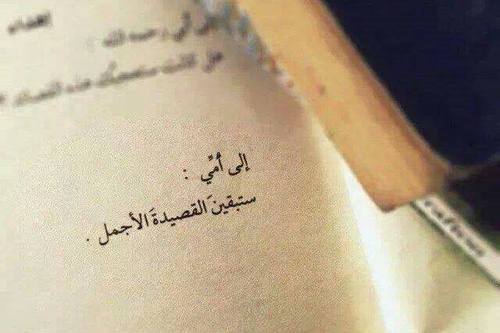 إهداء
إلى أبي رحمه الله :
هل كانت ستعجبك هذه القصائد
إلى أمِّي :
ستبقينَ القصيدةَ الأجمل .